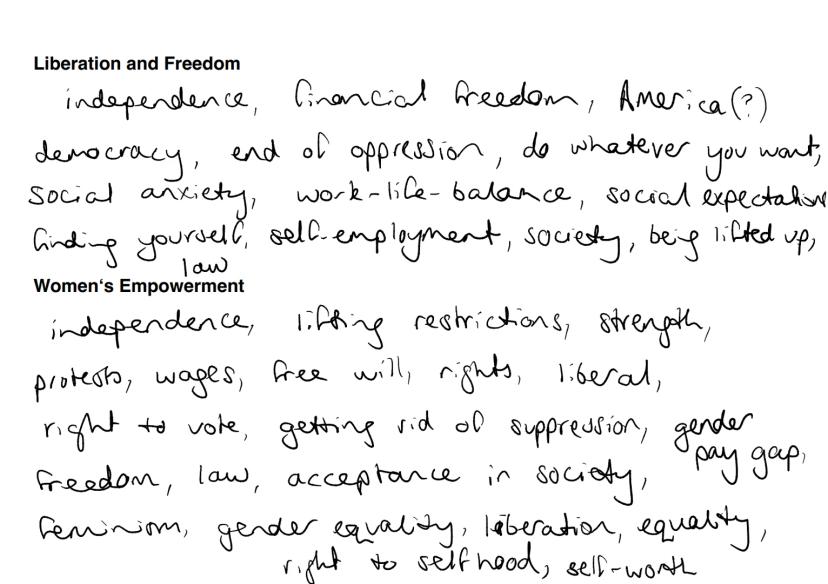 Liberation and Freedom
independence, financial freedom, America(?)
democracy, end of oppression, do whatever you want,
social anxiety, work-life-balance, social expectations
finding yourself, self-employment, society, being lifted up,
law
Women's Empowerment
independence, lifting restrictions, strength,
protests, wages, free will, rights, liberal,
right to vote, getting rid of suppression, gender
pay gap,
freedom, law, acceptance in society,
feminism, gender equality, liberation, equality,
right to selfhood, self-worth